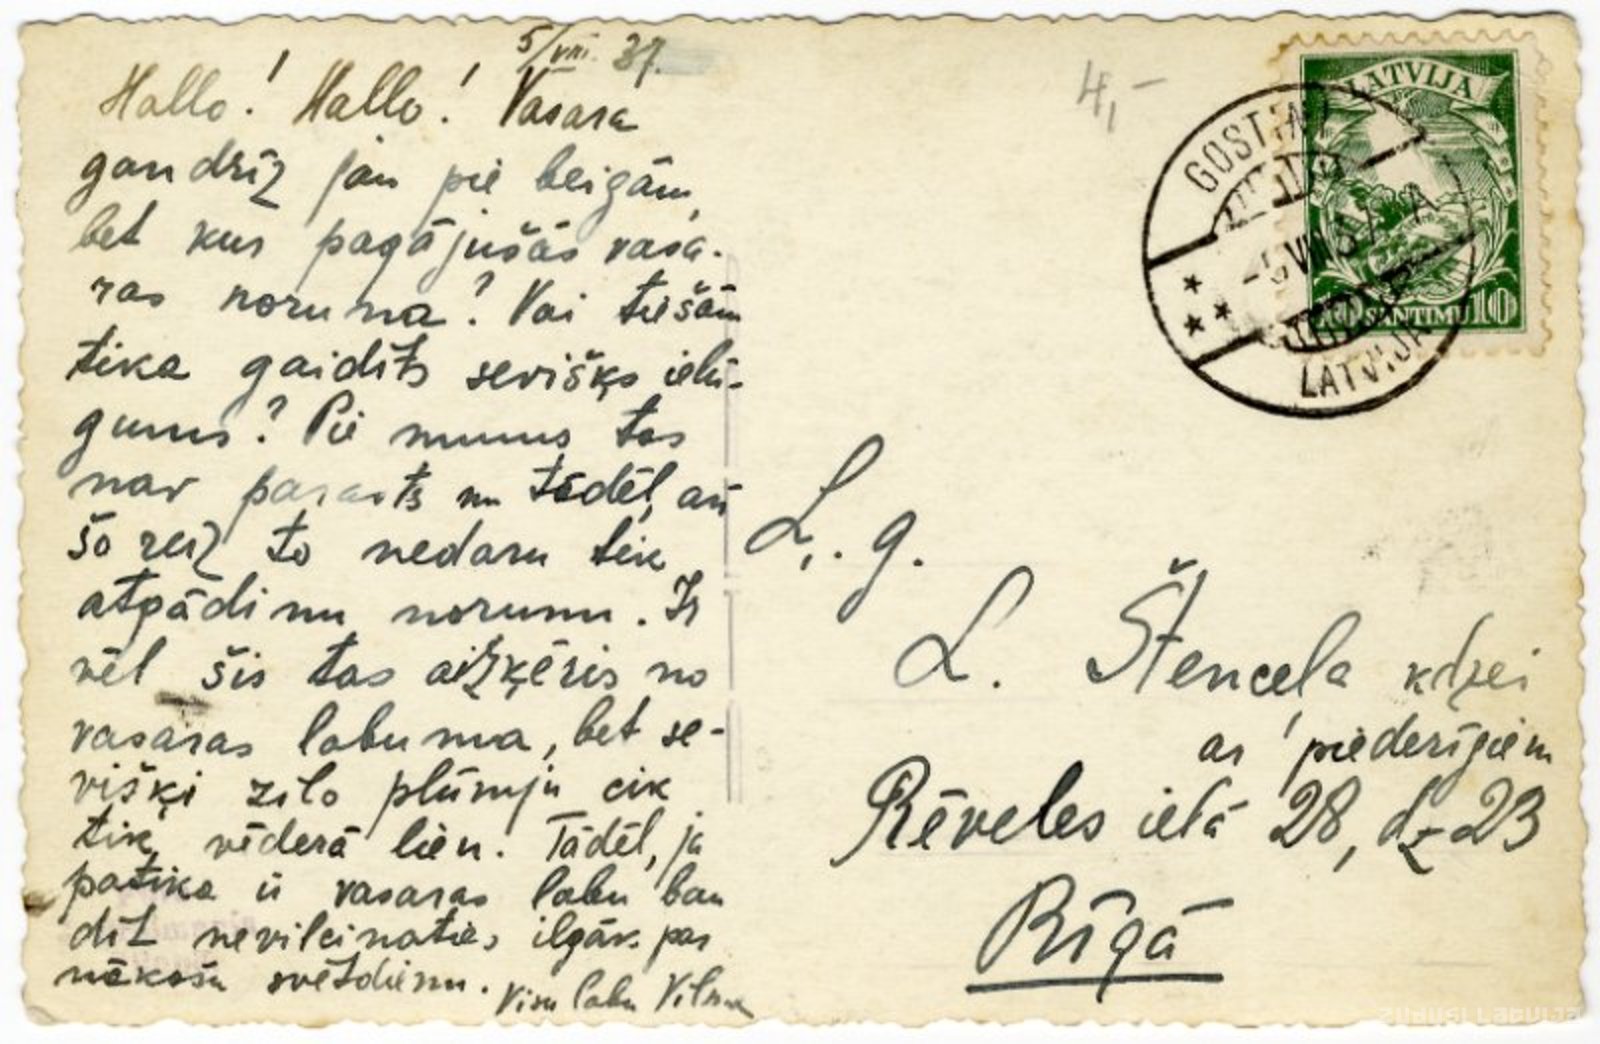 5/VIII. 37.
Hallo! Hallo! Vasara
gandrīz jau pie beigām,
bet kur pagājušās vasa-
ras noruna? Vai tiešām
tika gaidīts sevišķs ielū-
gums? Pie mums tas
nav parasts un tādēļ, arī
šo reiz to nedaru tik
atgādinu norunu. Ir
vēl šis tas aizķēris no
vasaras labuma, bet se-
višķi zilo plūmju cik
tik vēderā lien. Tādēļ, ja
patika ir vasaras labu bau
dīt nevilcinaties ilgāk par
nākošu svētdienu. Visu labu Vilma
4,-
LATVIJA
10 SANTIMU 10
GOSTIŅI
LATVIJA
Ļ. g.
L. Štencela kdzei
ar piederīgiem
Rēveles ielā 28, dz 23
Rīgā
ZUDUSI LATVIJA